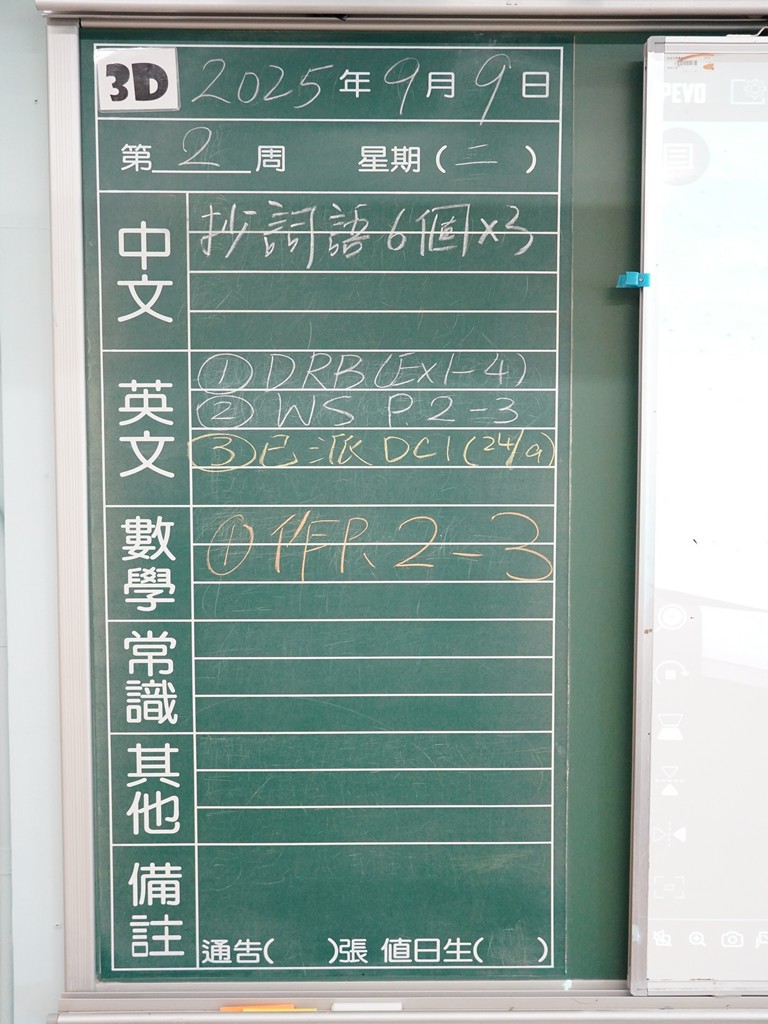 3D 2025年9月9日
第 2 周 星期(二)
中文
抄詞語6個×3
英文
① DRB(Ex1-4)
② WS P.2-3
③ 已派 DC1(24/9)
數學
① 作P.2-3
常識
其他
備註
通告( )張 值日生( )
PEVO